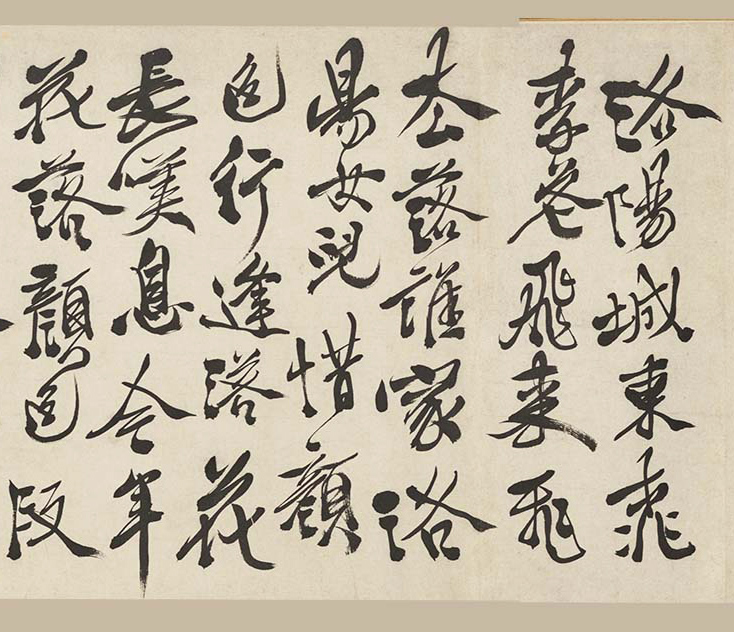 洛陽城東桃
李花飛來飛
去落誰家洛
陽女兒惜顏
色行逢落花
長嘆息今年
花落顏色改